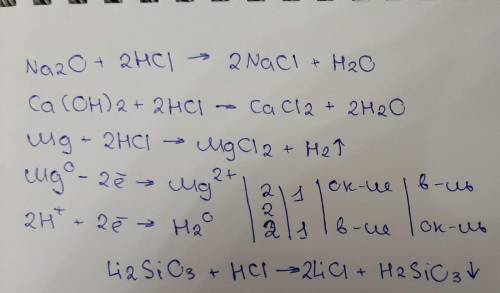 Na2O + 2HCl → 2NaCl + H2O
Ca(OH)2 + 2HCl – CaCl2 + 2H2O
Mg - 2HCl → MgCl2 + H2↑
Mg⁰ - 2ē → Mg²⁺ | 2 | 1 | ок-ие | в-ль
2
2H⁺ + 2ē → H2⁰ | 2 | 1 | в-ие | ок-ль
Li2SiO3 + HCl → 2LiCl + H2SiO3↓